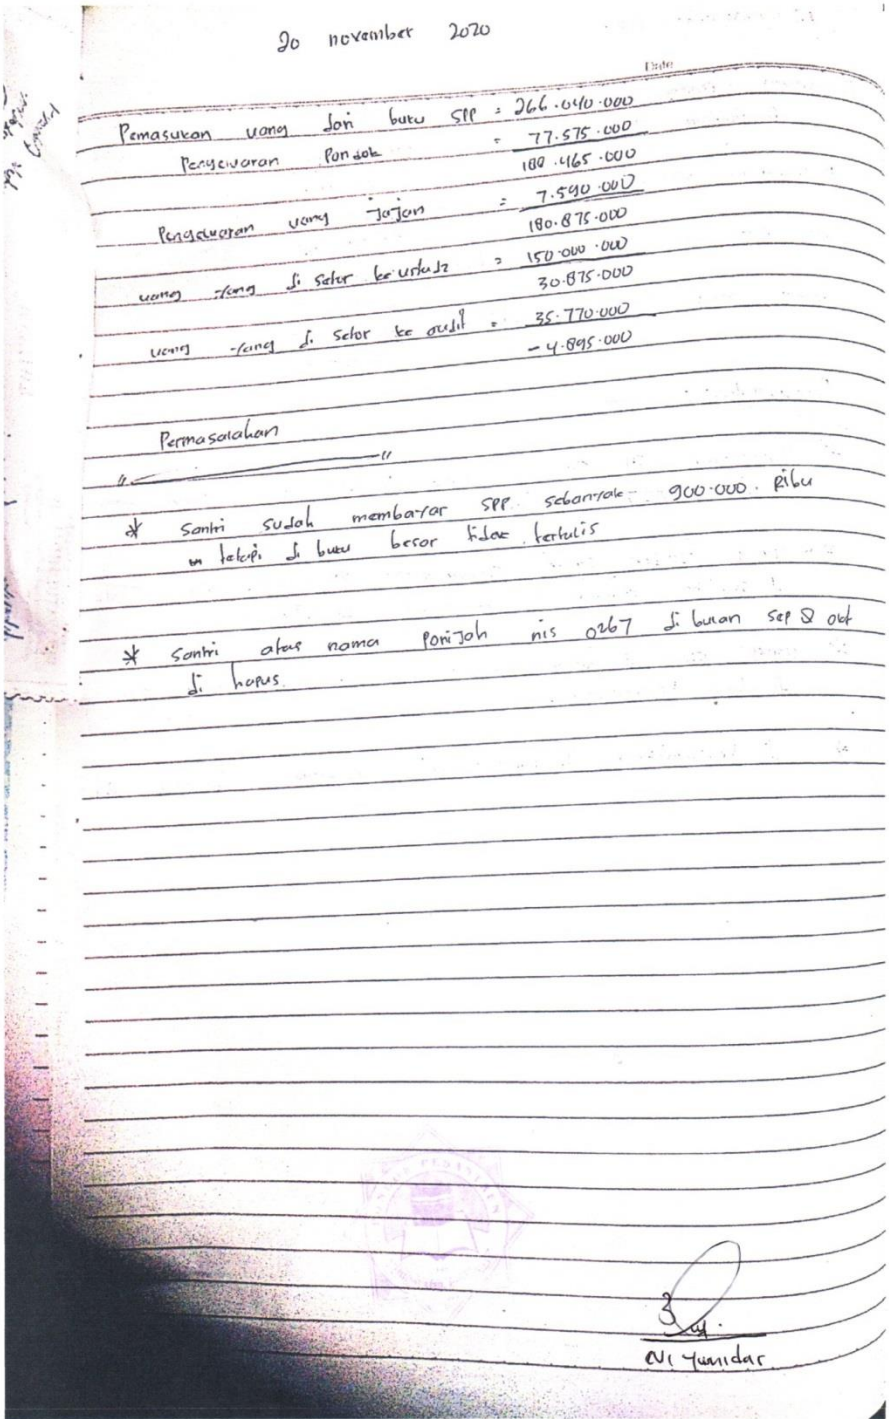 20 november 2020
Date
Pemasukan uang dari buku SPP = 266.040.000
Pengeluaran Pondok = 77.575.000
188.465.000
Pengeluaran uang jajan = 7.590.000
180.875.000
uang yang di setor ke ustadz = 150.000.000
30.875.000
uang yang di setor ke audit = 35.770.000
- 4.895.000
Permasalahan
* Santri sudah membayar SPP sebanyak 900.000 Ribu
tetapi di buku besar tidak tertulis
* Santri atas nama Ponijah nis 0267 di bulan Sep & okt
di hapus
Yunidar